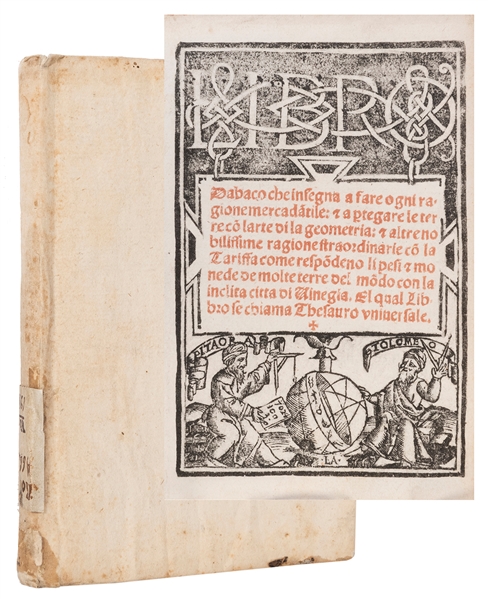 LIBRO
Dabaco che insegna a fare ogni ra-
gione mercadãtile: & a ptegare le ter
re cõ larte di la geometria: & altre no
bilissime ragione straordinarie cõ la
Tariffa come respõdeno li pesi & mo
nede de molte terre del mõdo con la
inclita citta di Uinegia. El qual Lib
bro se chiama Thesauro vniuersale.
PITAORA
PTOLOMEO
·LA·